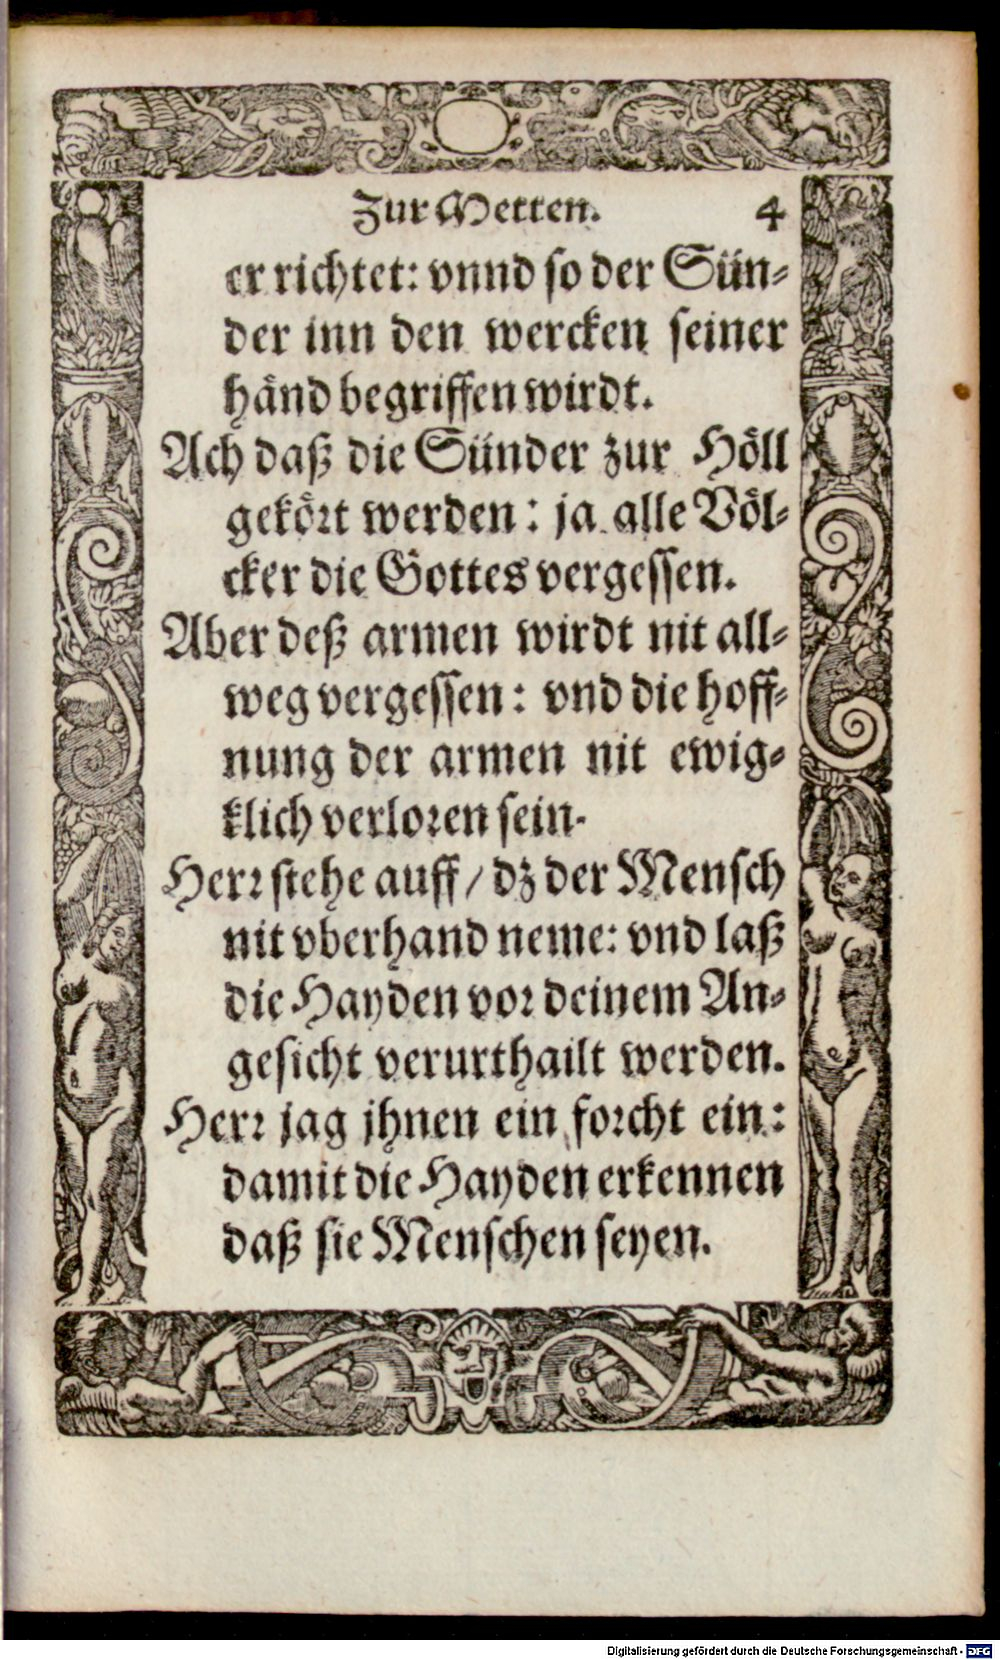 Zur Metten. 4
er richtet: vnnd so der Sün-
der inn den wercken seiner
händ begriffen wirdt.
Ach daß die Sünder zur Höll
gekört werden: ja alle Völ-
cker die Gottes vergessen.
Aber deß armen wirdt nit all-
weg vergessen: vnd die hoff-
nung der armen nit ewig-
klich verloren sein.
Herr stehe auff / dz der Mensch
nit vberhand neme: vnd laß
die Hayden vor deinem An-
gesicht verurthailt werden.
Herr jag jhnen ein forcht ein:
damit die Hayden erkennen
daß sie Menschen seyen.
Digitalisierung gefördert durch die Deutsche Forschungsgemeinschaft - DFG